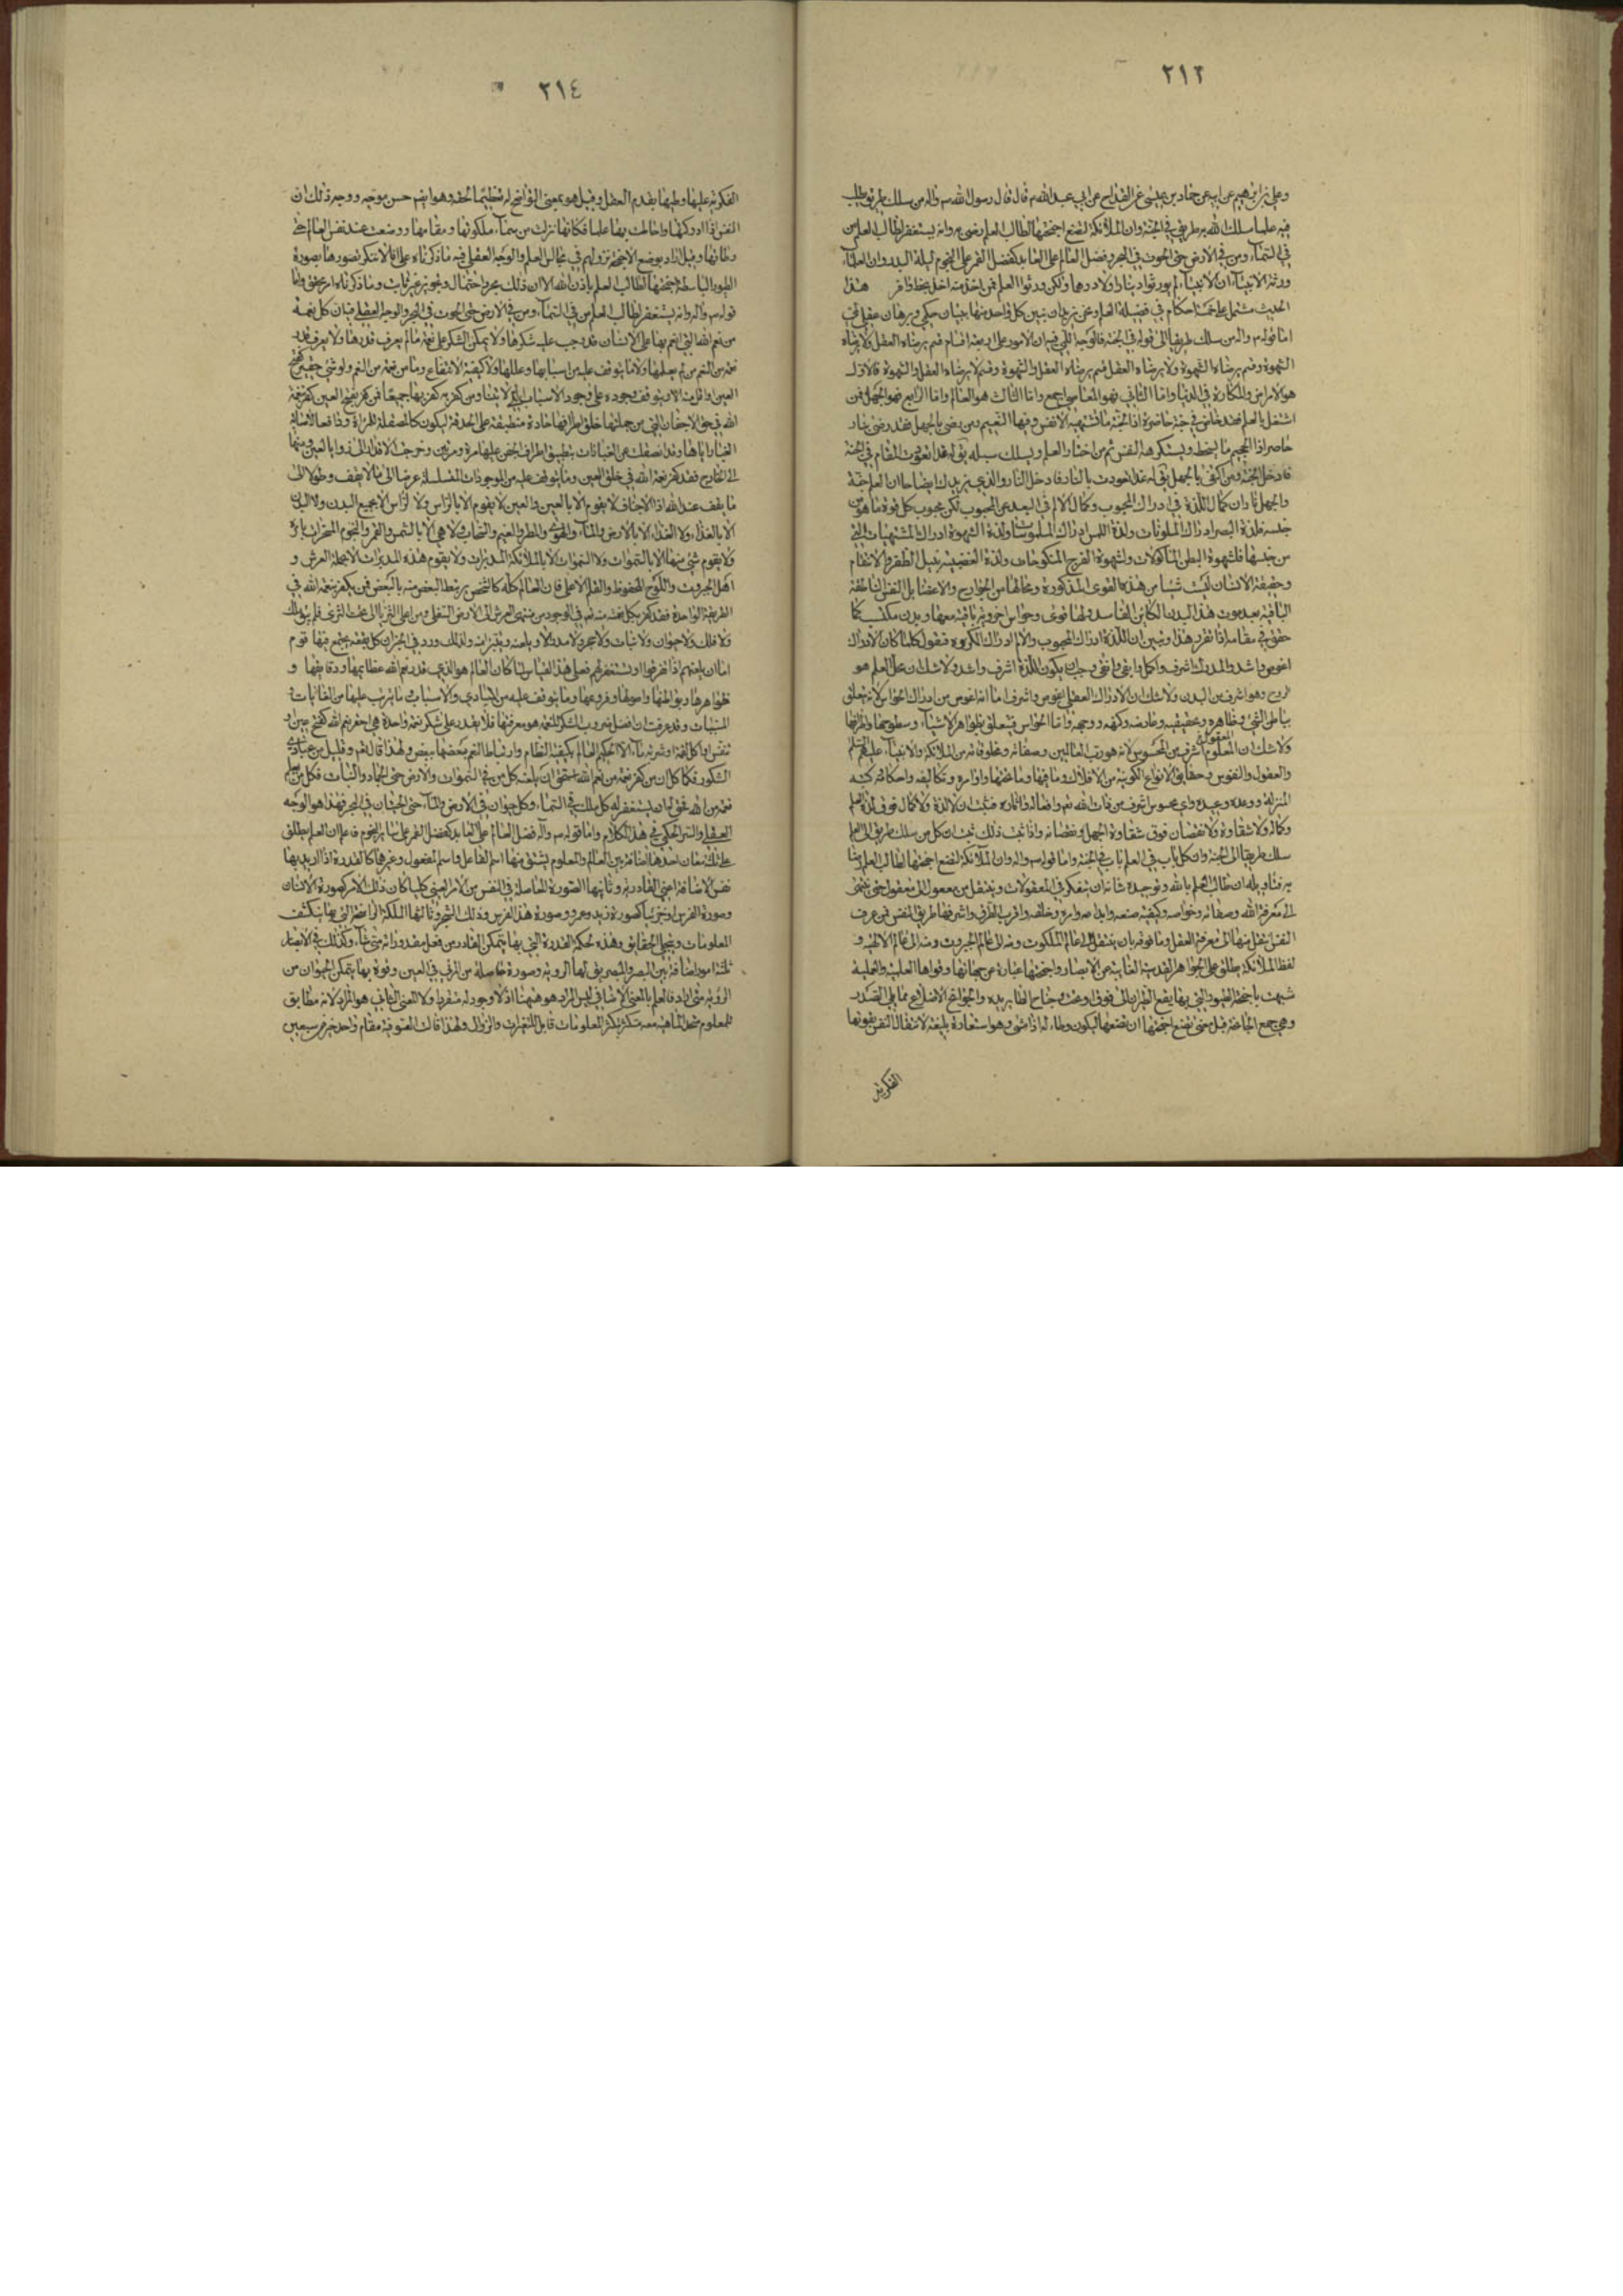 ٢١٣
وعلي بن ابرهيم عن ابيه عن حماد بن عيسى عن القداح عن ابي عبد الله ع قال قال رسول الله ص واله من سلك طريقا يطلب
فيه علما سلك الله به طريقا في الجنة وان الملائكة لتضع اجنحتها لطالب العلم رضى به وانه يستغفر لطالب العلم من
في السماء ومن في الارض حتى الحوت في البحر وفضل العالم على العابد كفضل القمر على النجوم ليلة البدر وان العلماء
ورثة الانبياء ان الانبياء لم يورثوا دينارا ولا درهما ولكن ورثوا العلم فمن اخذ منه اخذ بحظ وافر هذا
الحديث مشتمل على خمسة احكام في فضيلة العلم ونحن نريد ان نبين كل واحد منها ببيان حكمي وبرهان عقلي
اما قوله ص واله من سلك طريقا الى قوله في الجنة فالوجه اللمي فيه ان الامور على اربعة اقسام قسم يرضاه العقل ولا يرضاه
الشهوة وقسم يرضاه الشهوة ولا يرضاه العقل وقسم يرضاه العقل والشهوة وقسم لا يرضاه العقل والشهوة فالاول
هو الامراض والمكاره في الدنيا واما الثاني فهو المعاصي اجمع واما الثالث هو العلم واما الرابع فهو الجهل فمن
اشتغل بالعلم فقد خاض في جنة حاضرة اذ الجنة ما تشتهيه الانفس وفيها النعيم ومن رضي بالجهل فقد رضي بنار
حاضرة اذ الجحيم ما يسخط ويستكرهه النفس ثم من اختار العلم ويسلك سبيله يقال له غدا تعودت المقام في الجنة
فادخل الجنة ومن اكتفى بالجهل يقال له غدا تعودت بالنار فادخل النار والذي يزيدك ايضاحا ان العلم جنة
والجهل نار ان كمال اللذة في ادراك المحبوب وكمال الالم في البعد عن المحبوب لكن محبوب كل قوة ما هو من
جنسه فلذة البصر ادراك الملونات ولذة اللمس ادراك الملموسات ولذة الشهوة ادراك المشتهيات التي
من جنسها فلشهوة البطن الماكولات ولشهوة الفرج المنكوحات ولذة الغضبية بنيل الظفر والانتقام
وحقيقة الانسان ليست شيئا من هذه القوى المذكورة ومحالها من الجوارح والاعضاء بل النفس الناطقة
الباقية بعد موت هذا البدن الكائن الفاسد ولها قوى وحواس اخروية باقية معها وبدن مكتسب كما
حقق في مقامه اذا تقرر هذا وتبين ان اللذة ادراك المحبوب والالم ادراك المكروه فنقول كلما كان الادراك
اغوص واشد والمدرك اشرف واكمل وابقى وانقى وجب ان يكون اللذة اشرف واشد ولا شك ان محل العلم هو
الروح وهو اشرف من البدن ولا شك ان الادراك العقلي اغوص واشرف اما انه اغوص من ادراك الحواس لانه يتعلق
بباطن الشيء وظاهره وحقيقته وعارضه وكنهه ووجهه واما الحواس فيتعلق بظواهر الاشياء وسطوحها واطرافها
ولا شك ان المعلوم المعقول اشرف من المحسوس لانه هو رب العالمين وصفاته ومخلوقاته من الملائكة والانبياء عليهم السلام
والعقول والنفوس وحقايق الانواع الكونية من الافلاك وما فيها وما تحتها واوامره وتكاليفه واحكامه وكتبه
المنزلة ووعده وعيده واي محسوس اشرف من ذات الله تعالى وافعاله واثاره فثبت ان لا لذة ولا كمال فوق لذة العلم
وكماله ولا شقاوة ولا نقصان فوق شقاوة الجهل ونقصانه واذا ثبت ذلك ثبت ان كل من سلك طريق العلم
سلك طريقا الى الجنة وان كل باب في العلم باب في الجنة واما قوله ص واله وان الملائكة لتضع اجنحتها لطالب العلم رضا
به فتاويله ان طالب العلم بالله وتوحيده شانه ان يتفكر في المعقولات وينتقل من معقول الى معقول حتى ينتهي
الى معرفة الله وصفاته وخواصه وكيفية صنعه وابداعه وامره وخلقه واقرب الطرق واشرفها طريق النفس فمن عرف
النفس ينتقل منها الى معرفة العقل وما فوقه بان ينتقل الى عالم الملكوت ومنه الى عالم الجبروت ومنه الى عالم الالهية و
لفظ الملائكة يطلق على الجواهر القدسية الغائبة عن الابصار واجنحتها عبارة عن جهاتها وقواها العلمية والعملية
شبهت باجنحة الطيور التي بها يقع الطيران الى فوق او تحت وجناح الطاير يده والجوانح الاضلاع مما يلي الصدر
وهي جمع الجانحة قيل معنى تضع اجنحتها ان تضعها ليكون وطاء له اذا مشى وهو استعارة بليغة لانتقال النفس بقوتها
الفكرية
٢١٤
الفكرية عليها وطيها بقدم العقل وقيل هو بمعنى التواضع له تعظيما لحقه وهو ايضا حسن موجه ووجه ذلك ان
النفس اذا ادركتها واحاطت بها علما فكانها نزلت من سماء ملكوتها ومقامها ووضعت عند نفس العالم
وقيل اراد بوضع الاجنحة نزولهم في مجالس العلم والوجه العقلي فيه ما ذكرناه على انا لا ننكر تصورها بصورة
الطيور الباسطة اجنحتها لطالب العلم باذن الله الا ان ذلك مجرد احتمال وتجويز غير ثابت وما ذكرناه امر محقق واما
قوله ص واله وانه يستغفر لطالب العلم من في السماء ومن في الارض حتى الحوت في البحر والوجه العقلي فيه ان كل نعمة
من نعم الله التي انعم بها على الانسان قد وجب عليه شكرها ولا يمكن الشكر على نعمة ما لم يعرف قدرها ولا يعرف قدر
نعمة من النعم من لم يعلمها ولا ما يتوقف عليه من اسبابها وعللها ولا كيفية الانتفاع وما من نعمة من النعم ولو شيء حقير كفتح
العين واقل منه الا ويتوقف وجوده على وجود الاسباب التي لا تتناهى ومن كفر به كفر بها جميعا فمن كفر بفتح العين كفر نعمة
الله في حق الاجفان التي من جملتها خلق اطرافها حادة منطبقة على الحدقة ليكون كالمصقلة للمراة ودافعا لاصابة
الى الخارج فقد كفر نعمة الله في خلق العين وما يتوقف عليه من الموجودات المتسلسلة عرضا الى ما لا يقف وطولا الى
ما يقف عند الله اذ الاجفان لا يقوم الا بالعين والعين لا يقوم الا بالراس ولا الراس الا بجميع البدن ولا البدن
الا بالغذاء ولا الغذاء الا بالارض والماء والهواء والمطر والغيم والسحاب ولا هي الا بالشمس والقمر والنجوم المسخرات بامره
ولا يقوم شيء منها الا بالسموات ولا السموات الا بالملائكة المدبرات ولا يقوم هذه المدبرات الا بحملة العرش و
اهل الجبروت واللوح المحفوظ والقلم الاعلى فان العالم كله كالشخص يرتبط البعض منه بالبعض فمن يكفر بنعمة الله في
الطريقة الواحدة فقد كفر بكل نعمة منه تعالى في الوجود من منتهى العرش الى الارض السفلى ومن اعلى الثريا الى تحت الثرى فلم يبق ملك
ولا فلك ولا حيوان ولا نبات ولا حجر ولا مدر الا ويلعنه ولذلك ورد في الخبر ان كل بقعة يجتمع فيها قوم
اما ان يلعنهم اذا تفرقوا او تستغفر لهم فعلى هذا القياس لما كان العالم هو الذي يعرف قدر نعم الله عظايمها ودقايقها و
ظواهرها وبواطنها واصولها وفروعها وما يتوقف عليه من المبادي والاسباب وما يترتب عليها من الغايات
المسببات وقد عرفت ان افضل ضروب الشكر للنعمة هو معرفتها فلا يقدر على شكر نعمة واحدة هي احقر نعم الله كفتح عين او
تنفس او اكل لقمة او شربة ماء الا الحكيم العالم بكيفية النظام وارتباط النعم بعضها ببعض ولهذا قال تعالى وقليل من عبادي
الشكور فكما كان من كفر نعمة من نعم الله استحق ان يلعنه كل من في السموات والارض حتى الجماد والنبات فكل من يعلم
نعمة من الله فحق له ان يستغفر له كل ملك في السماء وكل حيوان في الارض والماء حتى الحيتان في البحر فهذا هو الوجه
العقلي والسر الحكمي في هذا الكلام واما قوله ص واله وفضل العالم على العابد كفضل القمر على ساير النجوم فاعلم ان العلم يطلق
على ثلث معان احدها الاضافة بين العالم والمعلوم يشتق منها اسم الفاعل واسم المفعول وغيرهما كالقدرة اذا اريد بها
نفس الاضافة اعني القادرية وثانيها الصورة الحاصلة في النفس من الامر العيني كليا كان ذلك الامر كصورة الانسان
وصورة الفرس او جزئيا كصورة زيد وعمرو وصورة هذا الفرس وذلك الشجر وثالثها الملكة الراسخة التي بها ينكشف
المعلومات ويتجلى الحقايق وهذه كحكم القدرة التي بها يتمكن القادر من فعل مقدوراته متى شاء وكذلك في الابصار
ثلثة امور اضافة بين البصر والمبصر يقال لها الروية وصورة حاصلة من المرئي في العين وقوة بها يتمكن الحيوان من
الروية متى اراد فالعلم بالمعنى الاضافي ليس المراد هو هيهنا اذ لا وجود له منفردا ولا المعنى الثاني هو المراد لانه مطابق
للمعلوم متحد الماهية معه متكثر بتكثر المعلومات قابل للتغيرات والزوال ولهذا قالت الصوفية مقام واحد خير من سبعين